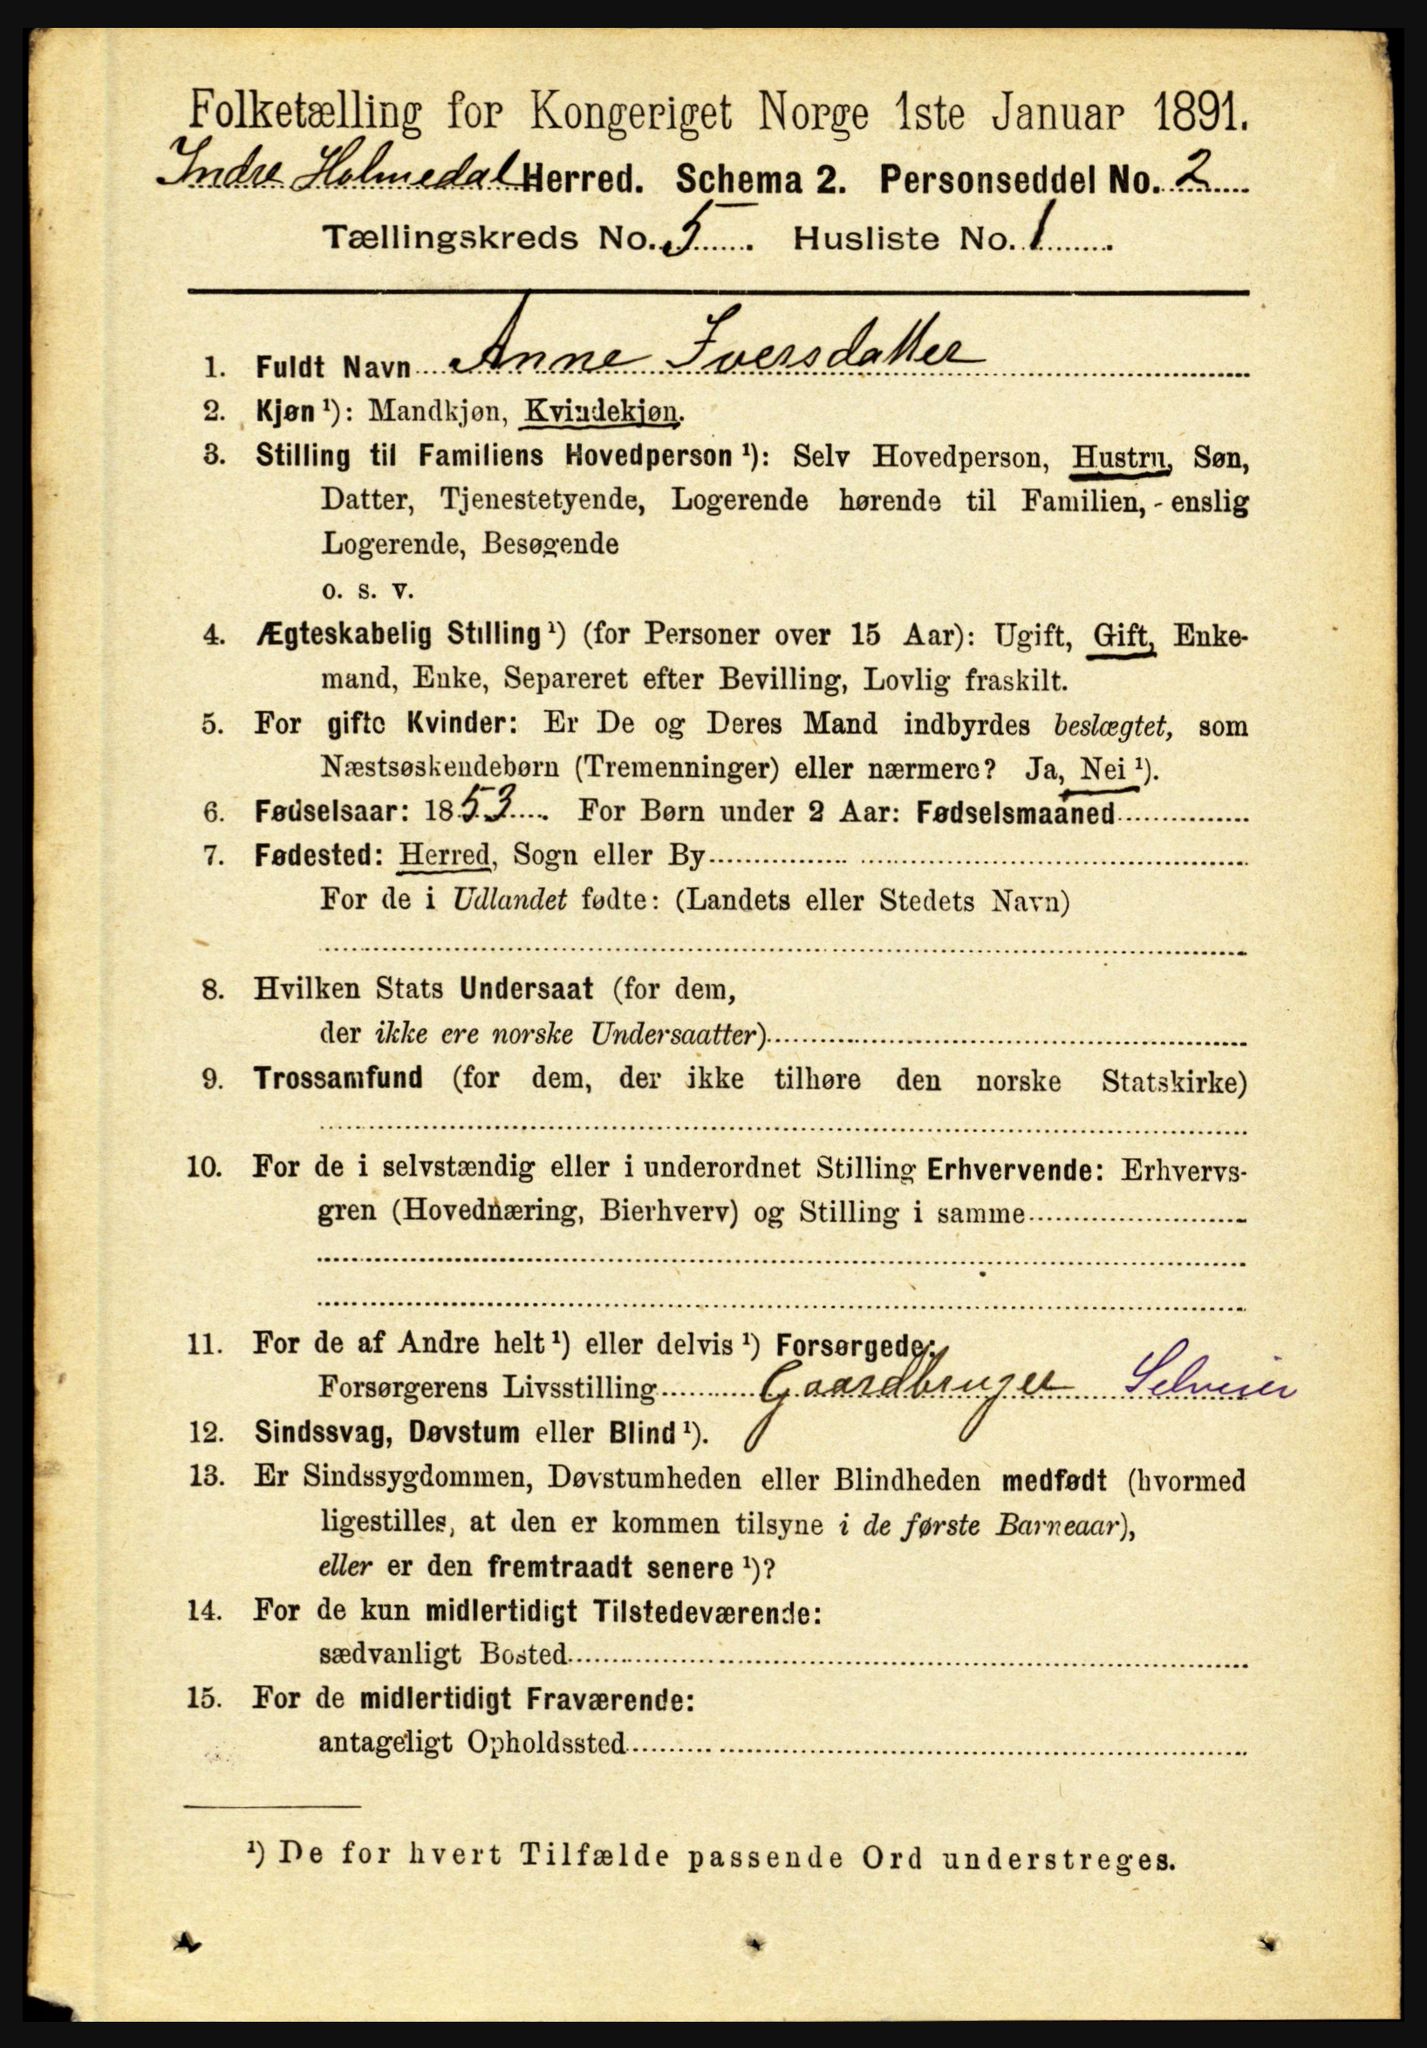 Folketælling for Kongeriget Norge 1ste Januar 1891.
Indre Holmedal Herred. Schema 2. Personseddel No. 2
Tællingskreds No. 5. Husliste No. 1.
1. Fuldt Navn Anne Iversdatter
2. Kjøn ¹): Mandkjøn, Kvindekjøn.
3. Stilling til Familiens Hovedperson ¹): Selv Hovedperson, Hustru, Søn,
Datter, Tjenestetyende, Logerende hørende til Familien, - enslig
Logerende, Besøgende
o. s. v.
4. Ægteskabelig Stilling ¹) (for Personer over 15 Aar): Ugift, Gift, Enke-
mand, Enke, Separeret efter Bevilling, Lovlig fraskilt.
5. For gifte Kvinder: Er De og Deres Mand indbyrdes beslægtet, som
Næstsøskendebørn (Tremenninger) eller nærmere? Ja, Nei ¹).
6. Fødselsaar: 1853. For Børn under 2 Aar: Fødselsmaaned
7. Fødested: Herred, Sogn eller By
For de i Udlandet fødte: (Landets eller Stedets Navn)
8. Hvilken Stats Undersaat (for dem,
der ikke ere norske Undersaatter)
9. Trossamfund (for dem, der ikke tilhøre den norske Statskirke)
10. For de i selvstændig eller i underordnet Stilling Erhvervende: Erhvervs-
gren (Hovednæring, Bierhverv) og Stilling i samme
11. For de af Andre helt ¹) eller delvis ¹) Forsørgede:
Forsørgerens Livsstilling Gaardbruger Selveier
12. Sindssvag, Døvstum eller Blind ¹).
13. Er Sindssygdommen, Døvstumheden eller Blindheden medfødt (hvormed
ligestilles, at den er kommen tilsyne i de første Barneaar),
eller er den fremtraadt senere ¹)?
14. For de kun midlertidigt Tilstedeværende:
sædvanligt Bosted
15. For de midlertidigt Fraværende:
antageligt Opholdssted
¹) De for hvert Tilfælde passende Ord understreges.